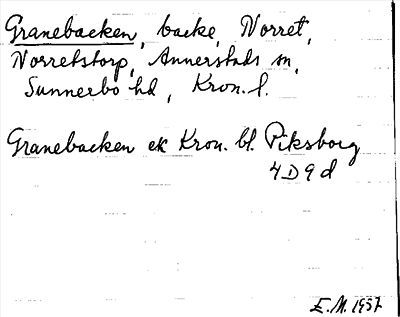 Granebacken, backe, Norret,
Norretstorp, Annerstads sn,
Sunnerbo hd, Kron. l.
Granebacken ek Kron. bl. Piksborg
4D9d
E.M. 1957